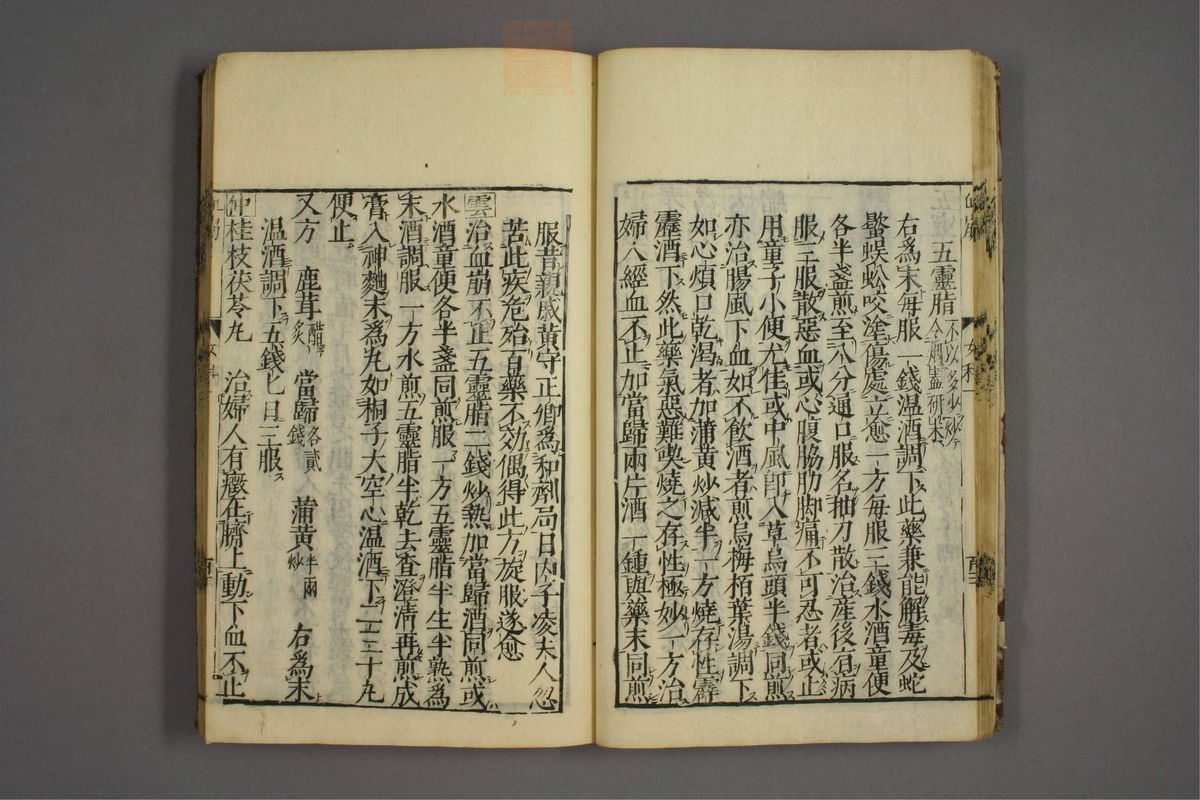 五靈脂不以多少炒令烟盡研末
右爲末每服一錢温酒調下此藥兼能解毒及蛇
螫蜈蚣咬塗傷處立愈一方每服三錢水酒童便
各半盞煎至八分通口服名抽刀散治産後有病
服三服散惡血或心腹脇肋脚痛不可忍者或止
用童子小便尤佳或中風即入草烏頭半錢同煎
亦治腸風下血如不飲酒者煎烏梅栢葉湯調下
如心煩口乾渴者加蒲黄炒减半一方燒存性霹
靂酒下然此藥氣惡難喫燒之存性極妙一方治
婦人經血不止加當歸兩片酒一鍾與藥末同煎
服昔親戚黄守正卿爲和劑局日内子凌夫人忽
苦此疾危殆百藥不効偶得此方旋服遂愈
雲治血崩不止五靈脂二錢炒熱加當歸酒同煎或
水酒童便各半盞同煎服一方五靈脂半生半熟爲
末酒調服一方水煎五靈脂半乾去查澄清再煎成
膏入神麯末爲丸如桐子大空心温酒下二三十丸
便止
又方 鹿茸醋炙 當歸各貳錢 蒲黄半兩炒 右爲末
温酒調下五錢匕日三服
仲桂枝茯苓丸 治婦人有癥在臍上動下血不止